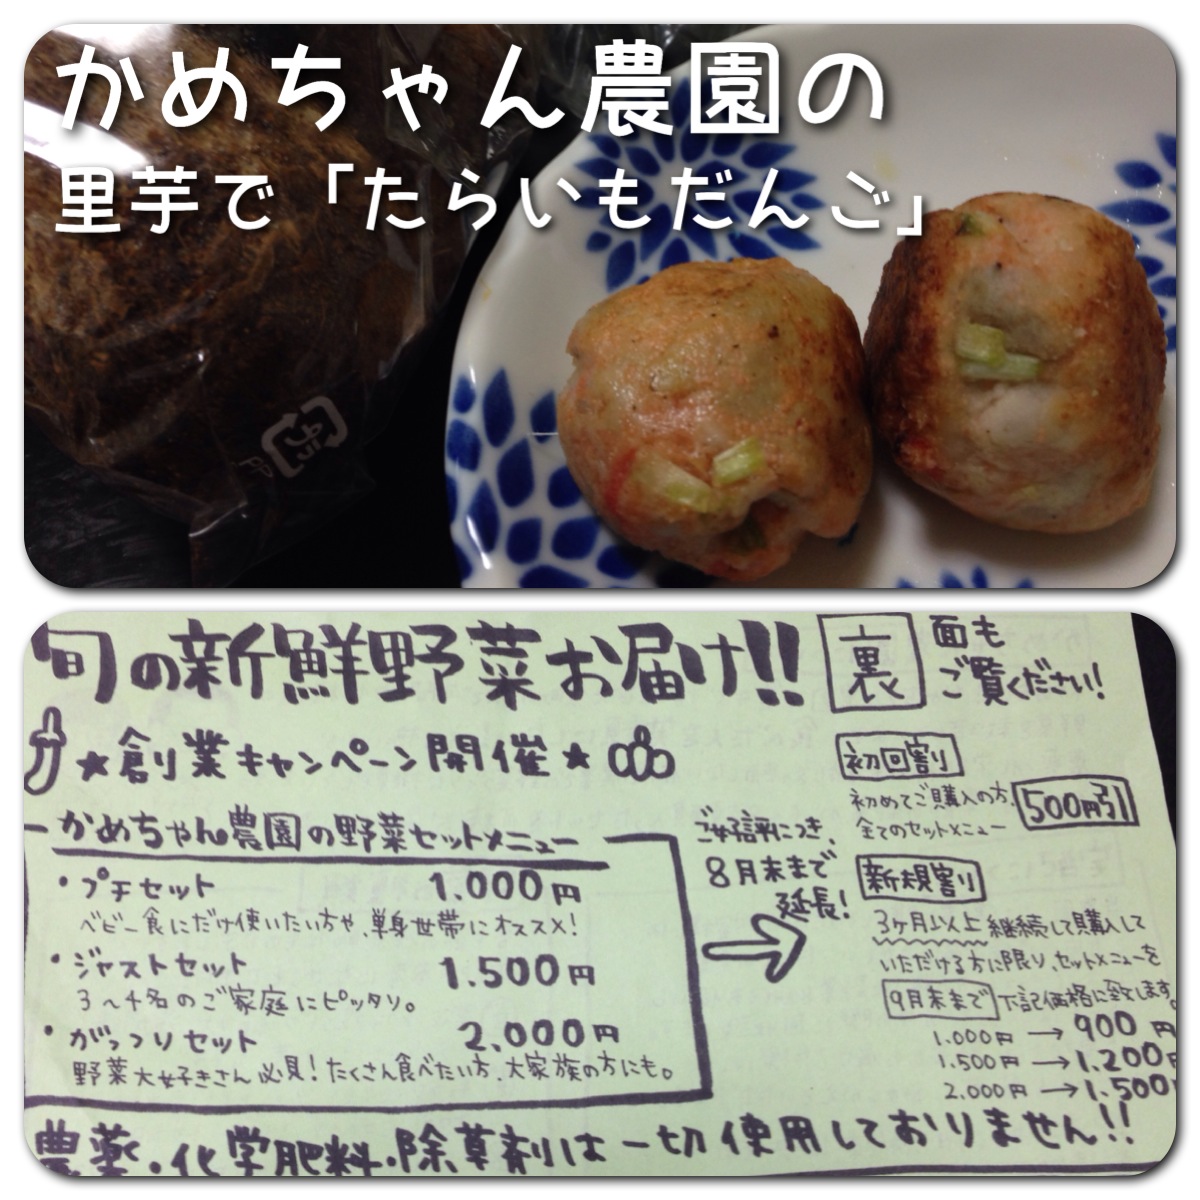 かめちゃん農園の
里芋で「たらいもだんご」
プラ
旬の新鮮野菜お届け!!
裏 面も
ご覧ください!
★創業キャンペーン開催★
かめちゃん農園の野菜セットメニュー
・プチセット 1.000円
ベビー食にだけ使いたい方や、単身世帯にオススメ!
・ジャストセット 1.500円
3〜4名のご家庭にピッタリ。
・がっつりセット 2.000円
野菜大好きさん必見!たくさん食べたい方、大家族の方にも。
ご好評につき、
8月末まで
延長!
初回割
初めてご購入の方、
全てのセットメニュー 500円引
新規割
3ヶ月以上継続して購入して
いただける方に限り、セットメニューを
9月末まで下記価格に致します。
1.000円→900円
1.500円→1.200円
2.000円→1.500円
農薬・化学肥料・除草剤は一切使用しておりません!!